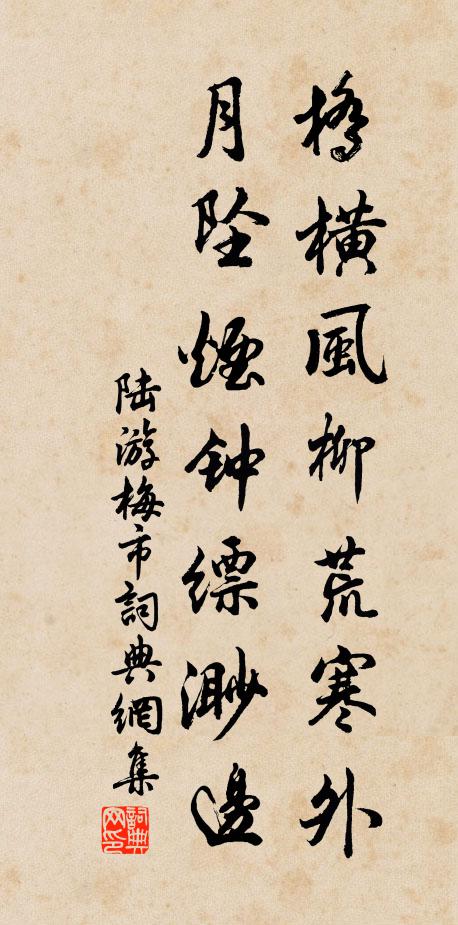 橋橫風柳荒寒外
月墜煙钟縹渺邊
陸游梅市詞典網集
詞典网印